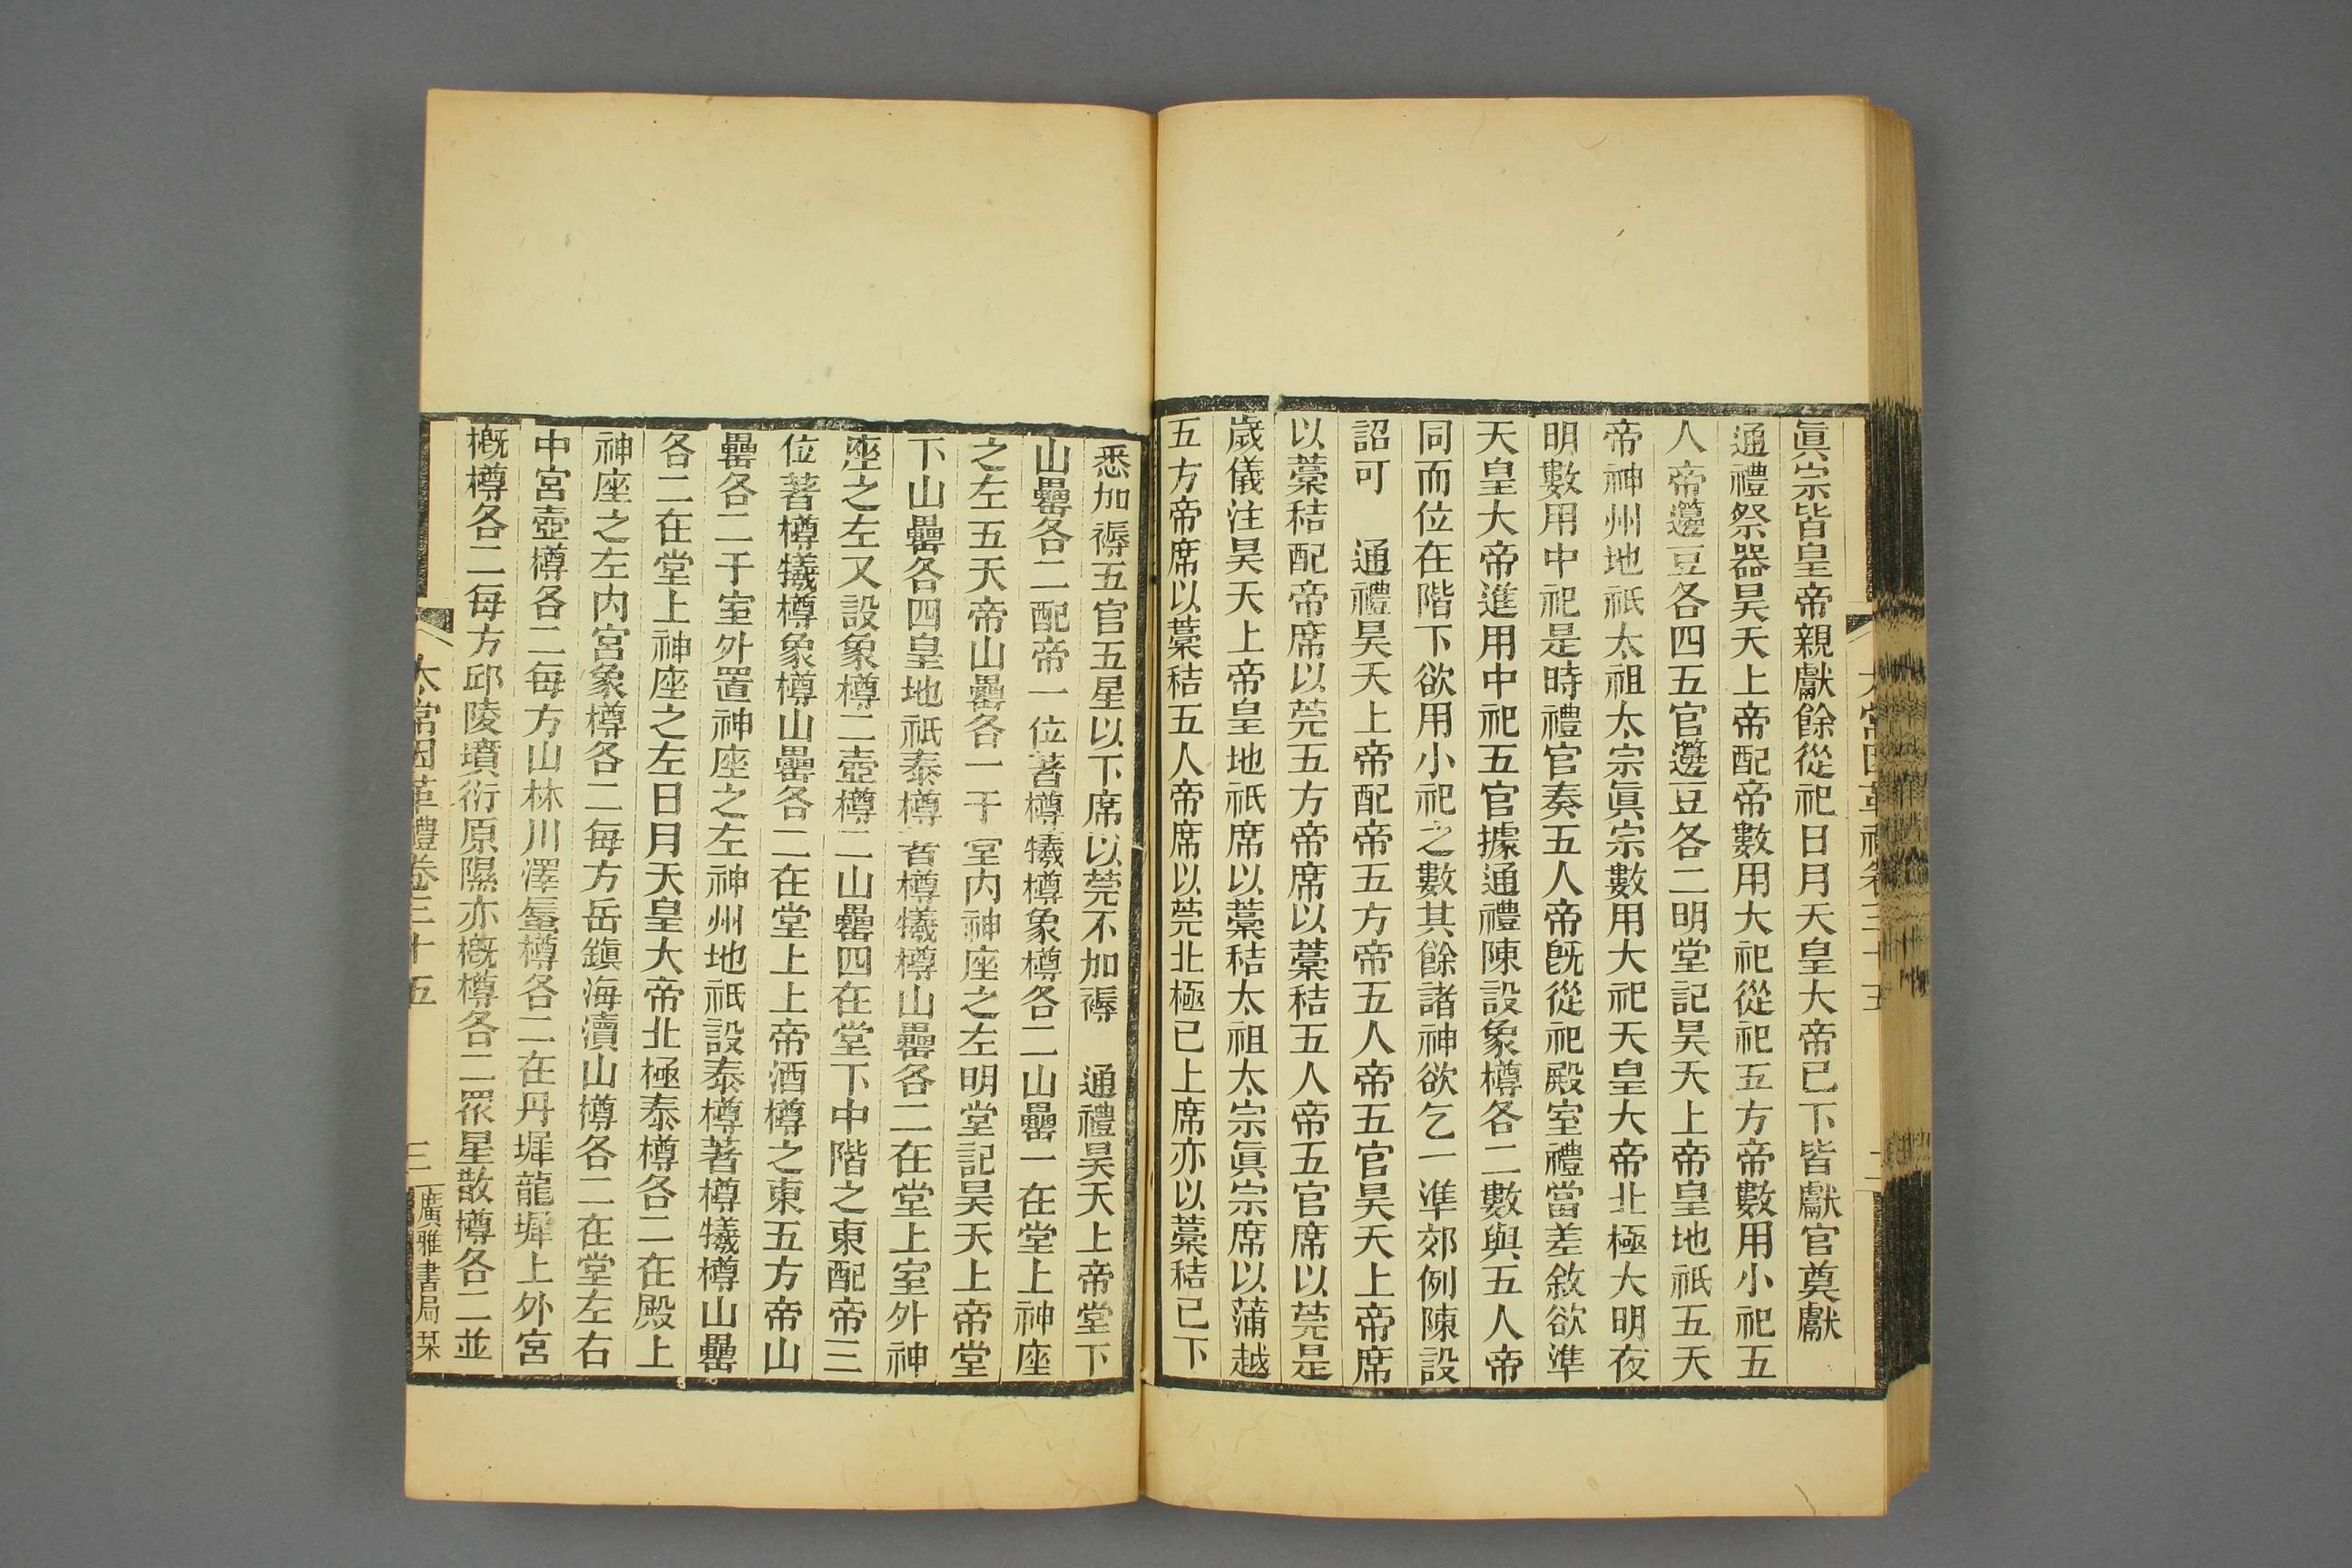 眞宗皆皇帝親獻餘從祀日月天皇大帝已下皆獻官奠獻
通禮祭器昊天上帝配帝數用大祀從祀五方帝數用小祀五
人帝籩豆各四五官籩豆各二明堂記昊天上帝皇地祇五天
帝神州地祇太祖太宗眞宗數用大祀天皇大帝北極大明夜
明數用中祀是時禮官奏五人帝旣從祀殿室禮當差敘欲準
天皇大帝進用中祀五官據通禮陳設象樽各二數與五人帝
同而位在階下欲用小祀之數其餘諸神欲乞一準郊例陳設
詔可　通禮昊天上帝配帝五方帝五人帝五官昊天上帝席
以藁秸配帝席以莞五方帝席以藁秸五人帝五官席以莞是
歲儀注昊天上帝皇地祇席以藁秸太祖太宗眞宗席以蒲越
五方帝席以藁秸五人帝席以莞北極已上席亦以藁秸已下
悉加褥五官五星以下席以莞不加褥　通禮昊天上帝堂下
山罍各二配帝一位著樽犧樽象樽各二山罍一在堂上神座
之左五天帝山罍各一于室內神座之左明堂記昊天上帝堂
下山罍各四皇地祇泰樽著樽犧樽山罍各二在堂上室外神
座之左又設象樽二壺樽二山罍四在堂下中階之東配帝三
位著樽犧樽象樽山罍各二在堂上上帝酒樽之東五方帝山
罍各二于室外置神座之左神州地祇設泰樽著樽犧樽山罍
各二在堂上神座之左日月天皇大帝北極泰樽各二在殿上
神座之左內宮象樽各二每方岳鎮海瀆山樽各二在堂左右
中宮壺樽各二每方山林川澤蜃樽各二在丹墀龍墀上外宮
概樽各二每方邱陵墳衍原隰亦概樽各二眾星散樽各二並
太常因革禮卷三十五　三　廣雅書局栞